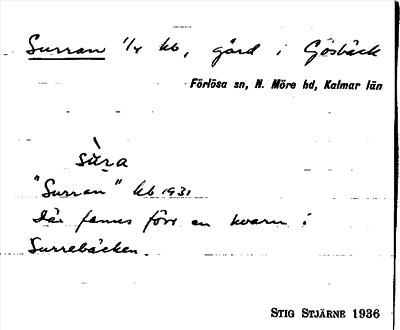 Surran 1/4 kb, gård i Gösbäck
Förlösa sn, N. Möre hd, Kalmar län
sùra
"Surran" kb 1931
Där fanns förr en kvarn i
Surrebäcken.
STIG STJÄRNE 1936